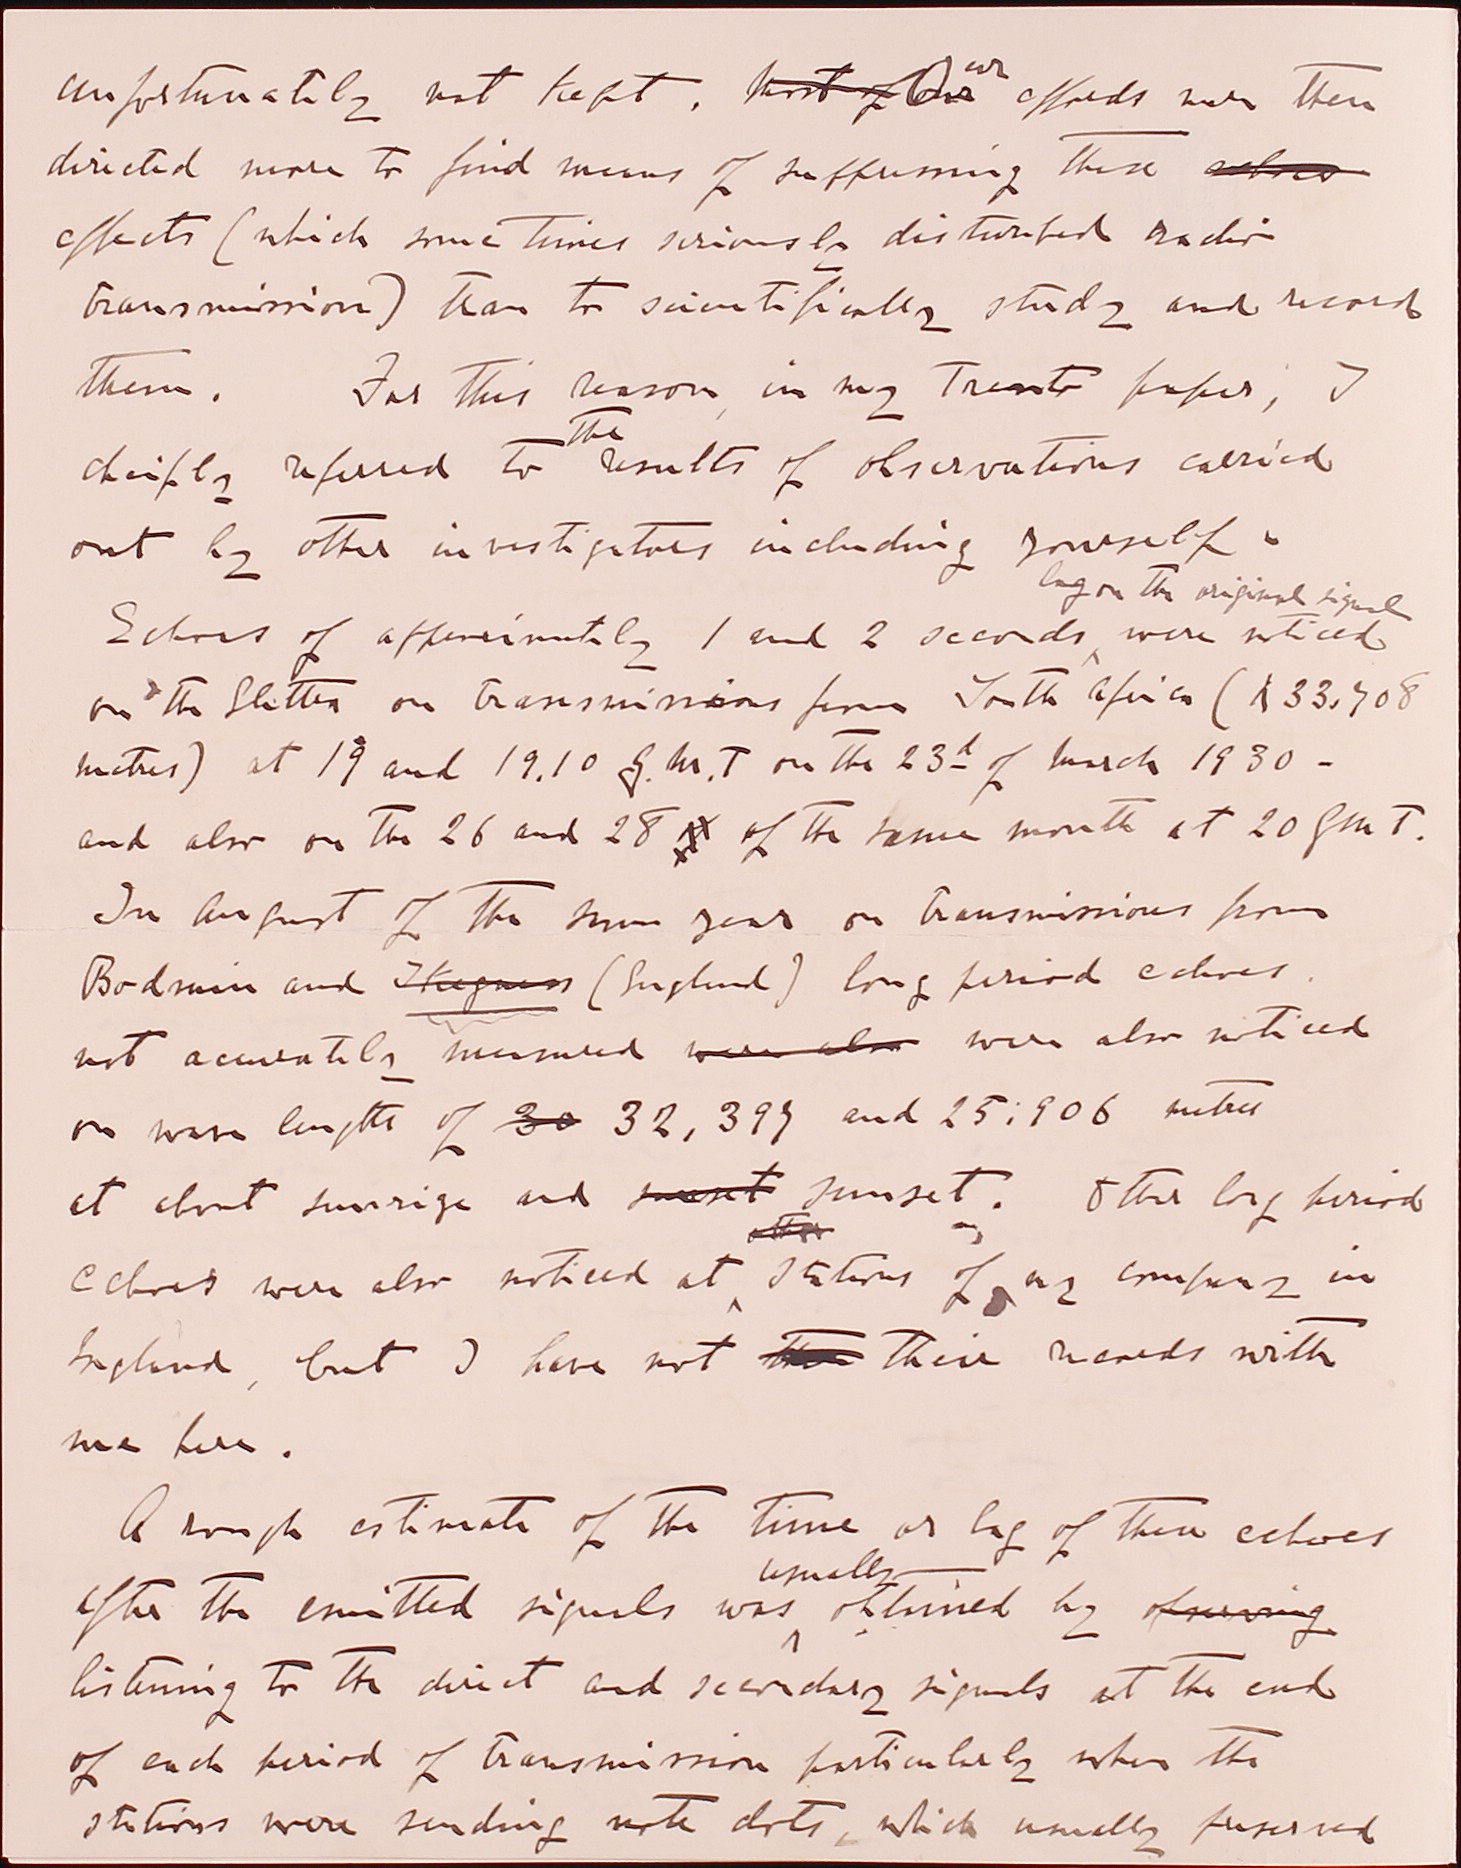 unfortunately not kept. Most of Our our efforts were then
directed more to find means of suppressing these echoes
effects (which sometimes seriously disturbed radio
transmission) than to scientifically study and record
them. For this reason, in my Trento paper, I
the
cheifly referred to results of observations carried
out by other investigators including yourself.
lag on the original signal
Echoes of approximately 1 and 2 seconds were noticed
on the Elettra on transmissions from South Africa (λ 33.708
metres) at 19 and 19.10 G.M.T on the 23d of March 1930 -
and also on the 26 and 28 of the same month at 20 GMT.
In August of the same year on transmissions from
Bodmin and Skegness (England) long period echoes.
not accurately measured were also were also noticed
on wave lengths of 30 32,397 and 25.906 metres
at about sunrise and sunset sunset. Other long period
other
echoes were also noticed at stations of my company in
England, but I have not their records with
me here.
A rough estimate of the time or lag of these echoes
usually
after the emitted signals was obtained by observing
listening to the direct and secondary signals at the end
of each period of transmission particularly when the
stations were sending note dots, which usually preserved